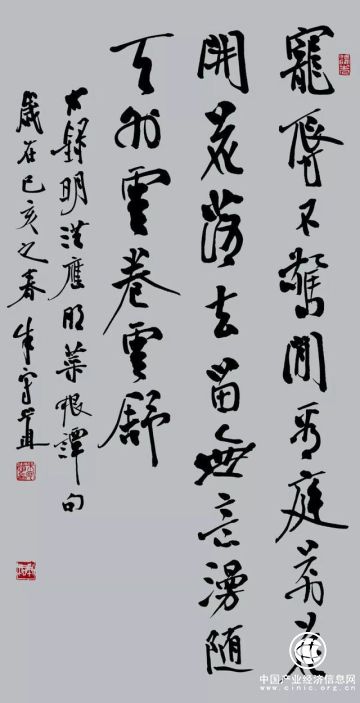 寵辱不驚閒看庭前花
開花落去留無意漫随
天外雲卷雲舒
右録明洪應明菜根譚句
歲在己亥之春朱守道
中国产业经济信息网
www.cinic.org.cn